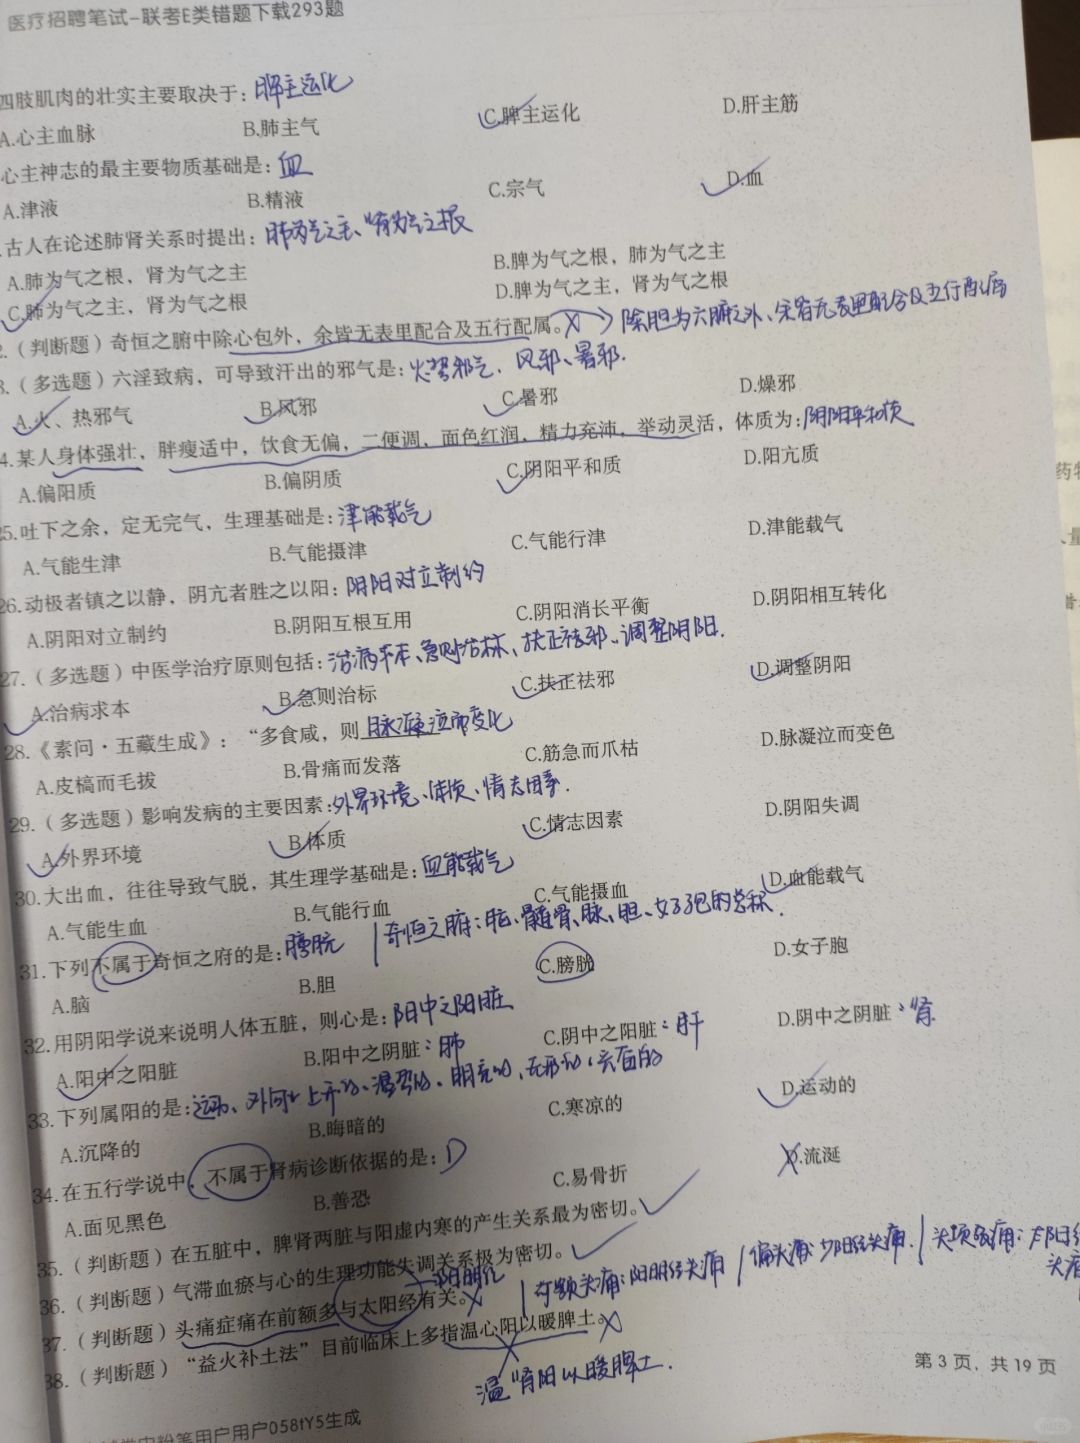 医疗招聘笔试-联考E类错题下载293题
四肢肌肉的壮实主要取决于: 脾主运化
A.心主血脉 B.肺主气 C.脾主运化 D.肝主筋
心主神志的最主要物质基础是: 血
A.津液 B.精液 C.宗气 D.血
.古人在论述肺肾关系时提出: 肺为气之主、肾为气之根
A.肺为气之根，肾为气之主 B.脾为气之根，肺为气之主
C.肺为气之主，肾为气之根 D.脾为气之主，肾为气之根
2.（判断题）奇恒之腑中除心包外，余皆无表里配合及五行配属。 X → 除胆为六腑之外、余皆无表里配合及五行配属
3.（多选题）六淫致病，可导致汗出的邪气是: 火热邪气、风邪、暑邪.
A.火、热邪气 B.风邪 C.暑邪 D.燥邪
4.某人身体强壮，胖瘦适中，饮食无偏，二便调，面色红润，精力充沛，举动灵活，体质为: 阴阳平和质
A.偏阳质 B.偏阴质 C.阴阳平和质 D.阳亢质
25.吐下之余，定无完气，生理基础是: 津能载气
A.气能生津 B.气能摄津 C.气能行津 D.津能载气
26.动极者镇之以静，阴亢者胜之以阳: 阴阳对立制约
A.阴阳对立制约 B.阴阳互根互用 C.阴阳消长平衡 D.阴阳相互转化
27.（多选题）中医学治疗原则包括: 治病求本、急则治标、扶正祛邪、调整阴阳.
A.治病求本 B.急则治标 C.扶正祛邪 D.调整阴阳
28.《素问·五藏生成》: “多食咸，则 脉凝泣而变化
A.皮槁而毛拔 B.骨痛而发落 C.筋急而爪枯 D.脉凝泣而变色
29.（多选题）影响发病的主要因素: 外界环境、体质、情志因素.
A.外界环境 B.体质 C.情志因素 D.阴阳失调
30.大出血，往往导致气脱，其生理学基础是: 血能载气
A.气能生血 B.气能行血 C.气能摄血 D.血能载气
31.下列不属于奇恒之府的是: 膀胱 | 奇恒之腑: 脑、髓骨、脉、胆、女子胞的总称.
A.脑 B.胆 C.膀胱 D.女子胞
32.用阴阳学说来说明人体五脏，则心是: 阳中之阳脏
A.阳中之阳脏 B.阳中之阴脏: 肺 C.阴中之阳脏: 肝 D.阴中之阴脏: 肾
33.下列属阳的是: 运动、外向、上升的、温热的、明亮的、无形的、亢奋的
A.沉降的 B.晦暗的 C.寒凉的 D.运动的
34.在五行学说中，不属于肾病诊断依据的是: D
A.面见黑色 B.善恐 C.易骨折 D.流涎
35.（判断题）在五脏中，脾肾两脏与阳虚内寒的产生关系最为密切。
36.（判断题）气滞血瘀与心的生理功能失调关系极为密切。
阳明经
37.（判断题）头痛症痛在前额多与太阳经有关。 X | 前额头痛: 阳明经头痛 | 偏头痛: 少阳经头痛. | 头项强痛: 太阳经头痛
38.（判断题）“益火补土法”目前临床上多指温心阳以暖脾土。 X
温肾阳以暖脾土.
第 3 页，共 19 页
粉笔用户用户058fY5生成